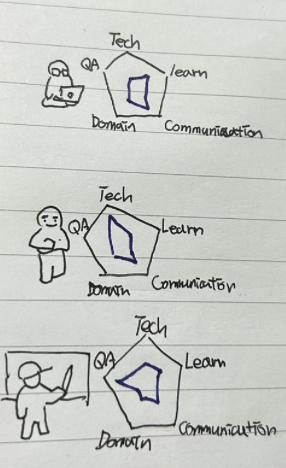 Tech
QA
learn
Domain Communication
Tech
QA Learn
Domain Communication
Tech
QA Learn
Communication
Domain